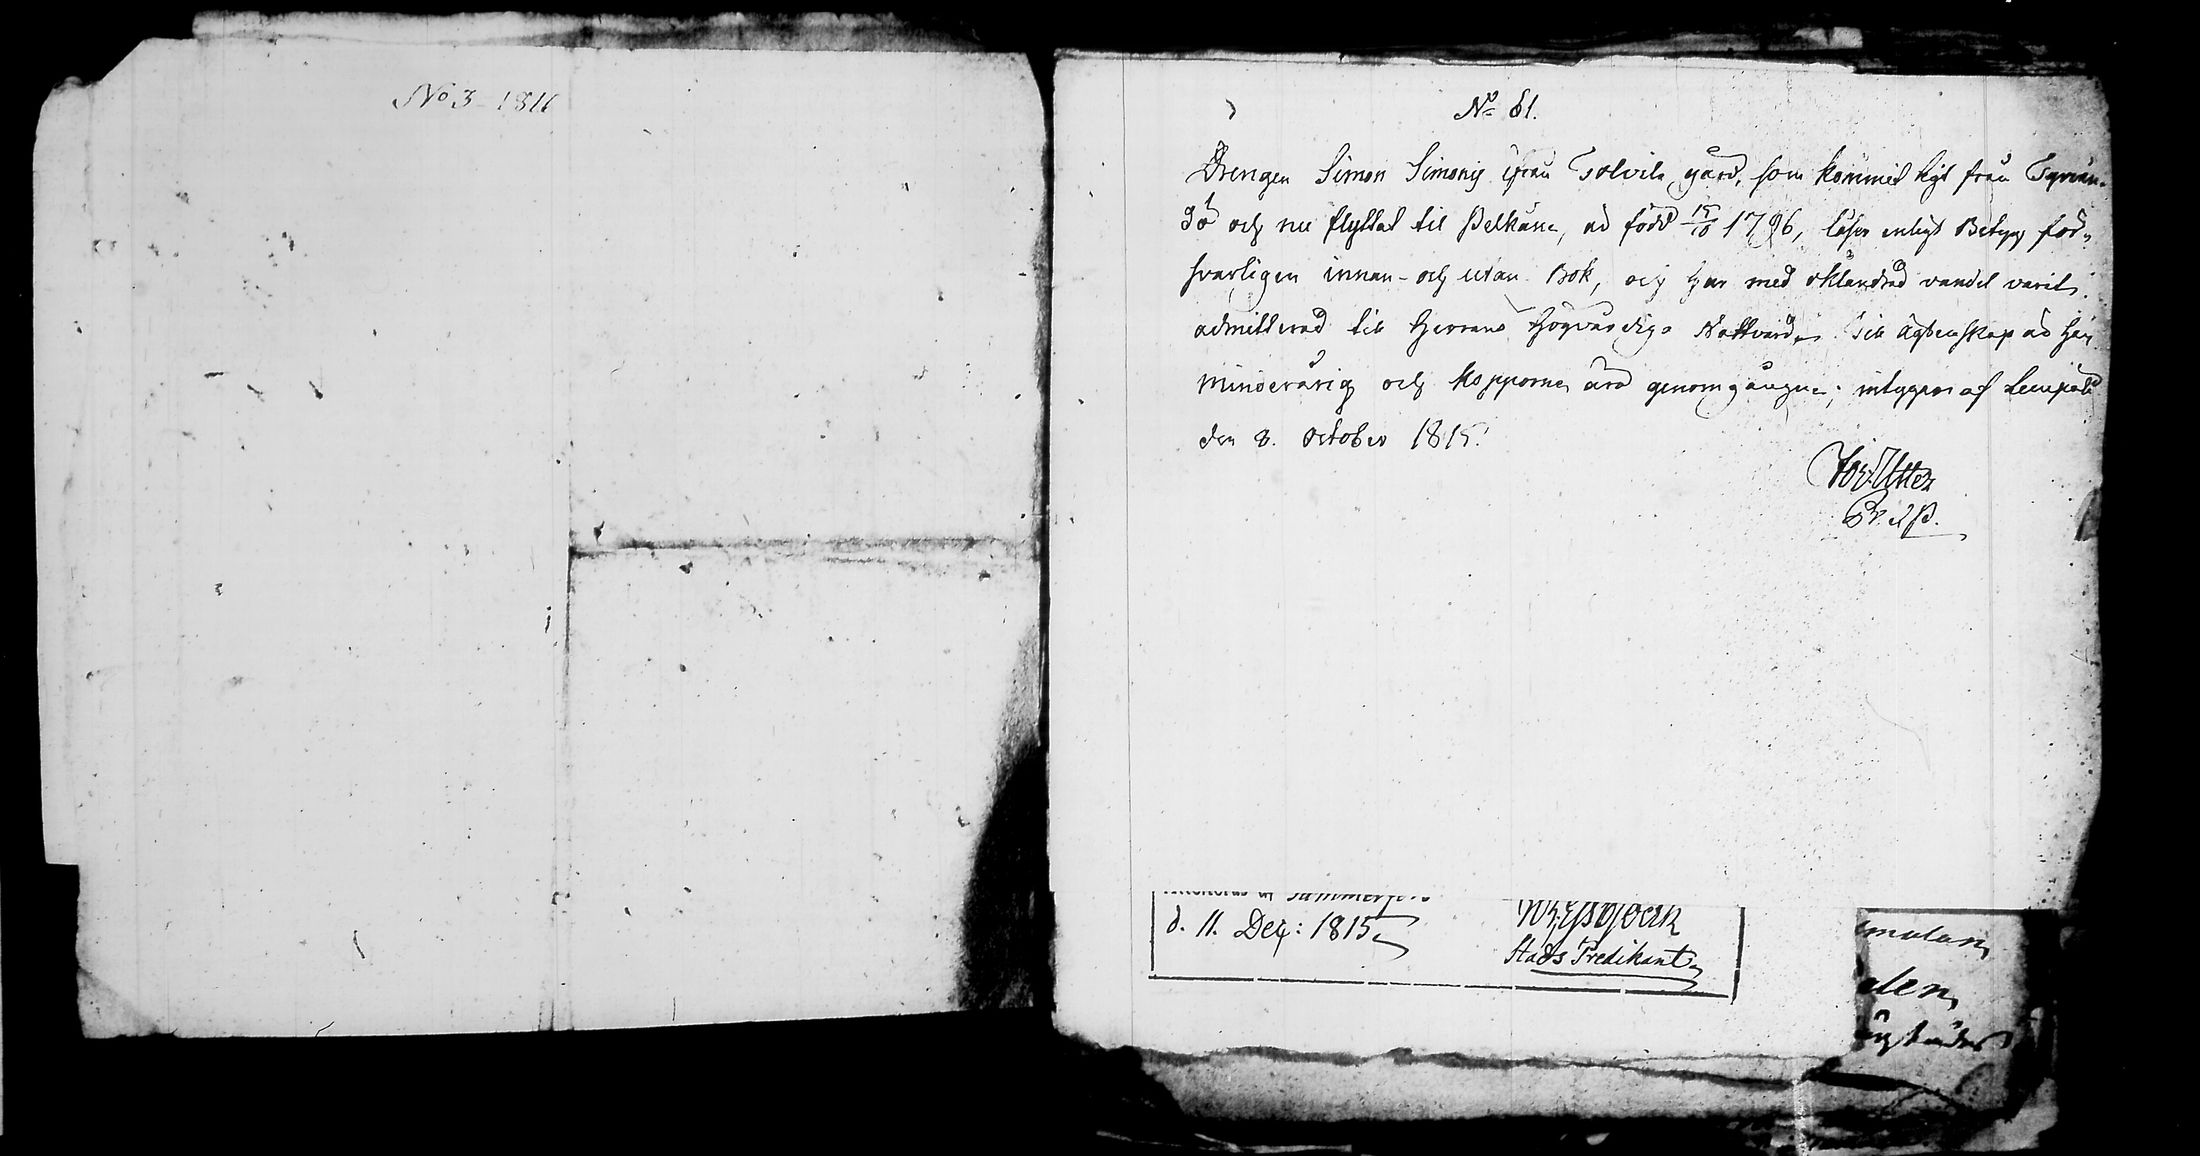 No 3 - 1816
No 61.
Drengen Simon Simonss ifrån Tolvila gård, som kommit hijt från Tyrvän-
dö och nu flyttat til Pelkäne, är född 15/10 1796, läser enligt Betyg för-
svarligen innan- och utan Bok, och har med oklandrad vandel varit
admitterad til Herrans Högvärdiga Nattvard. Til ägtenskap är han
minderårig och kopporne äro genomgångne; intygar af Lempälä
den 8. October 1815.
Utter
d. 11. Dec: 1815
Stads Predikant